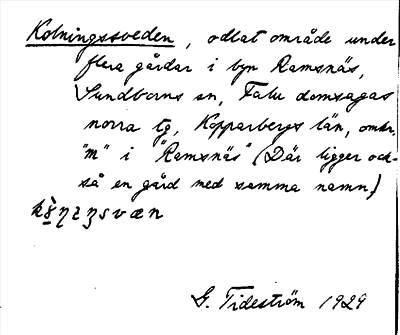 Kolningssveden, odlat område under
flera gårdar i byn Ramsnäs,
Sundborns sn, Falu domsagas
norra tg, Kopparbergs län, omkr.
"m" i "Ramsnäs" (Där ligger ock-
så en gård med samma namn)
G. Tideström 1929